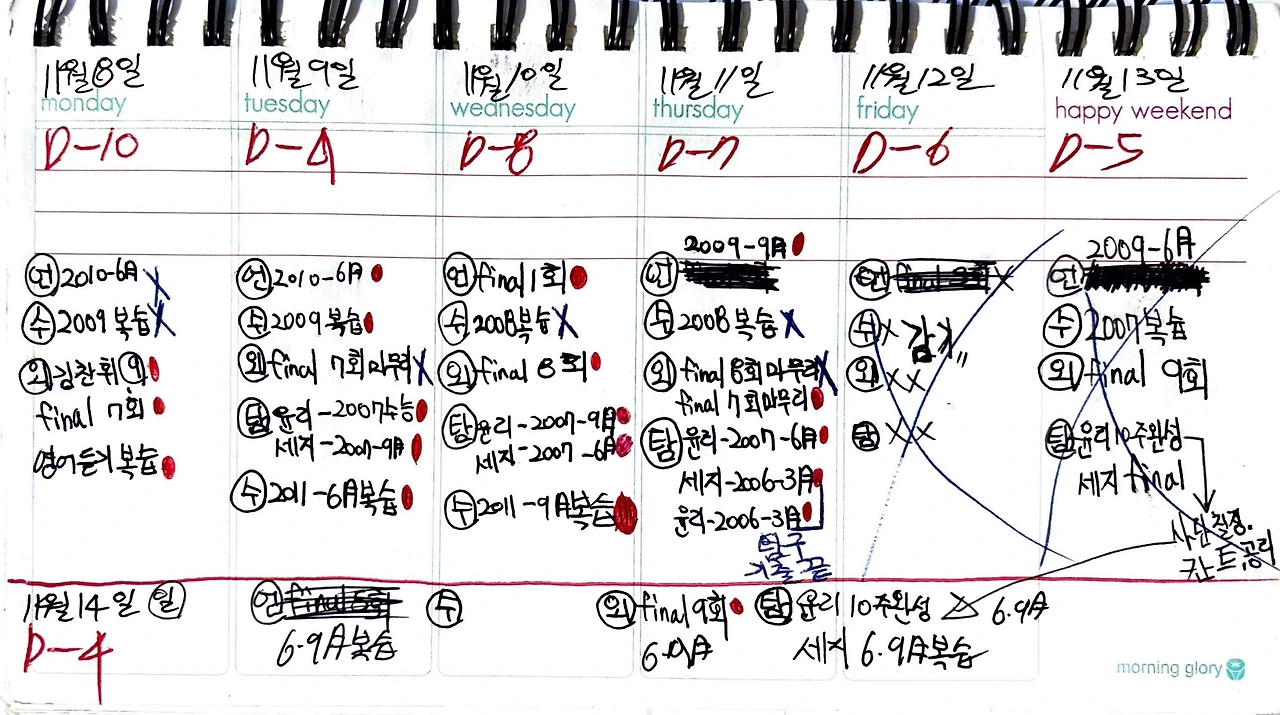 11월 8일
monday
D-10
언 2010-6月 X
수 2009 복습 X
외 김찬휘 9
final 7회
영어듣기 복습
11월 9일
tuesday
D-9
언 2010-6月
수 2009 복습
외 final 7회 마무리 X
탐 윤리-2007수능
세지-2007-9月
수 2011-6月복습
11월 10일
wednesday
D-8
언 final 1회
수 2008복습 X
외 final 8회
탐 윤리-2007-9月
세지-2007-6月
수 2011-9月복습
11월 11일
thursday
D-7
2009-9月
언
수 2008 복습 X
외 final 8회 마무리 X
final 7회 마무리
탐 윤리-2007-6月
세지-2006-3月
윤리-2006-3月
탐구
기출 끝
11월 12일
friday
D-6
언 final X
수 X 감기"
외 XX
탐 XX
11월 13일
happy weekend
D-5
2009-6月
언
수 2007복습
외 final 9회
탐 윤리10주완성
세지 final
사단칠정.
칸트, 공리
11월 14일 일
D-4
언 final 8회
6.9月 복습
수
외 final 9회
6.9月
탐 윤리 10주완성 △ 6.9月
세지 6.9月복습
morning glory